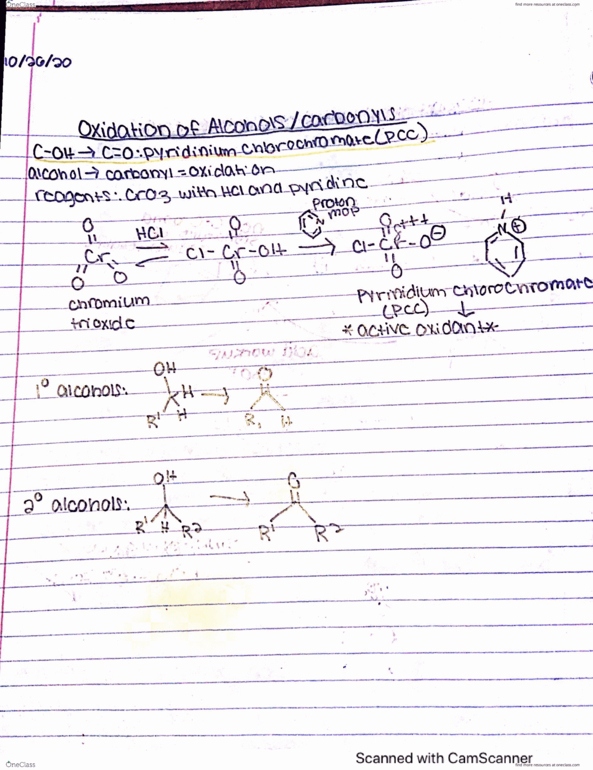 OneClass
find more resources at oneclass.com
10/26/20
Oxidation of Alcohols/carbonyls
C-OH → C=O: pyridinium chlorochromate (PCC)
alcohol → carbonyl = oxidation
reagents: CrO3 with HCl and pyridine
Proton mop
O O O Cr HCl Cl-Cr-OH O O N Cl-Cr-O⊖ O O +++ H N⊕
chromium trioxide
Pyrinidium chlorochromate
(PCC) ↓
*active oxidant*
1° alcohols: OH H R' H → O R, H
2° alcohols: OH R' H R2 → O R' R2
Scanned with CamScanner
OneClass
find more resources at oneclass.com